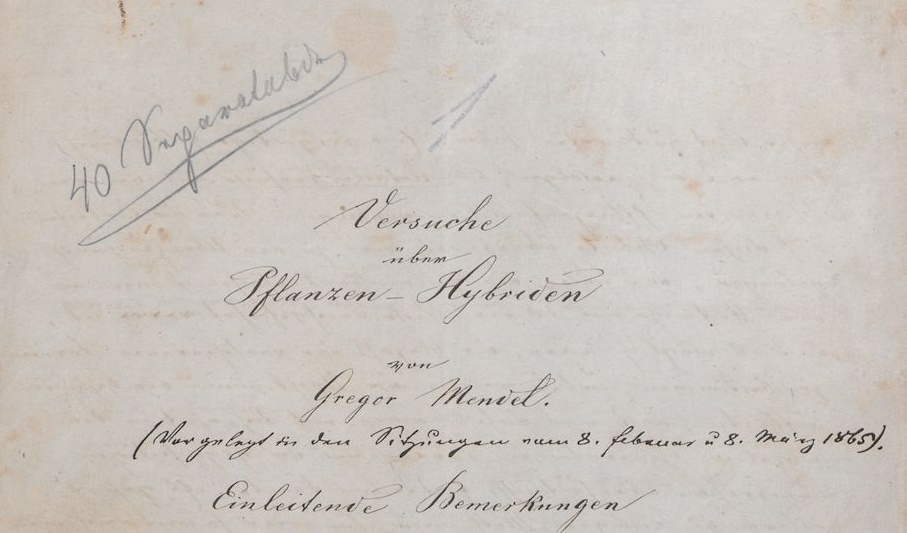 40 Separatabdr
Versuche
über
Pflanzen-Hybriden
von
Gregor Mendel.
(Vorgelegt in den Sitzungen vom 8. Februar u 8. März 1865).
Einleitende Bemerkungen